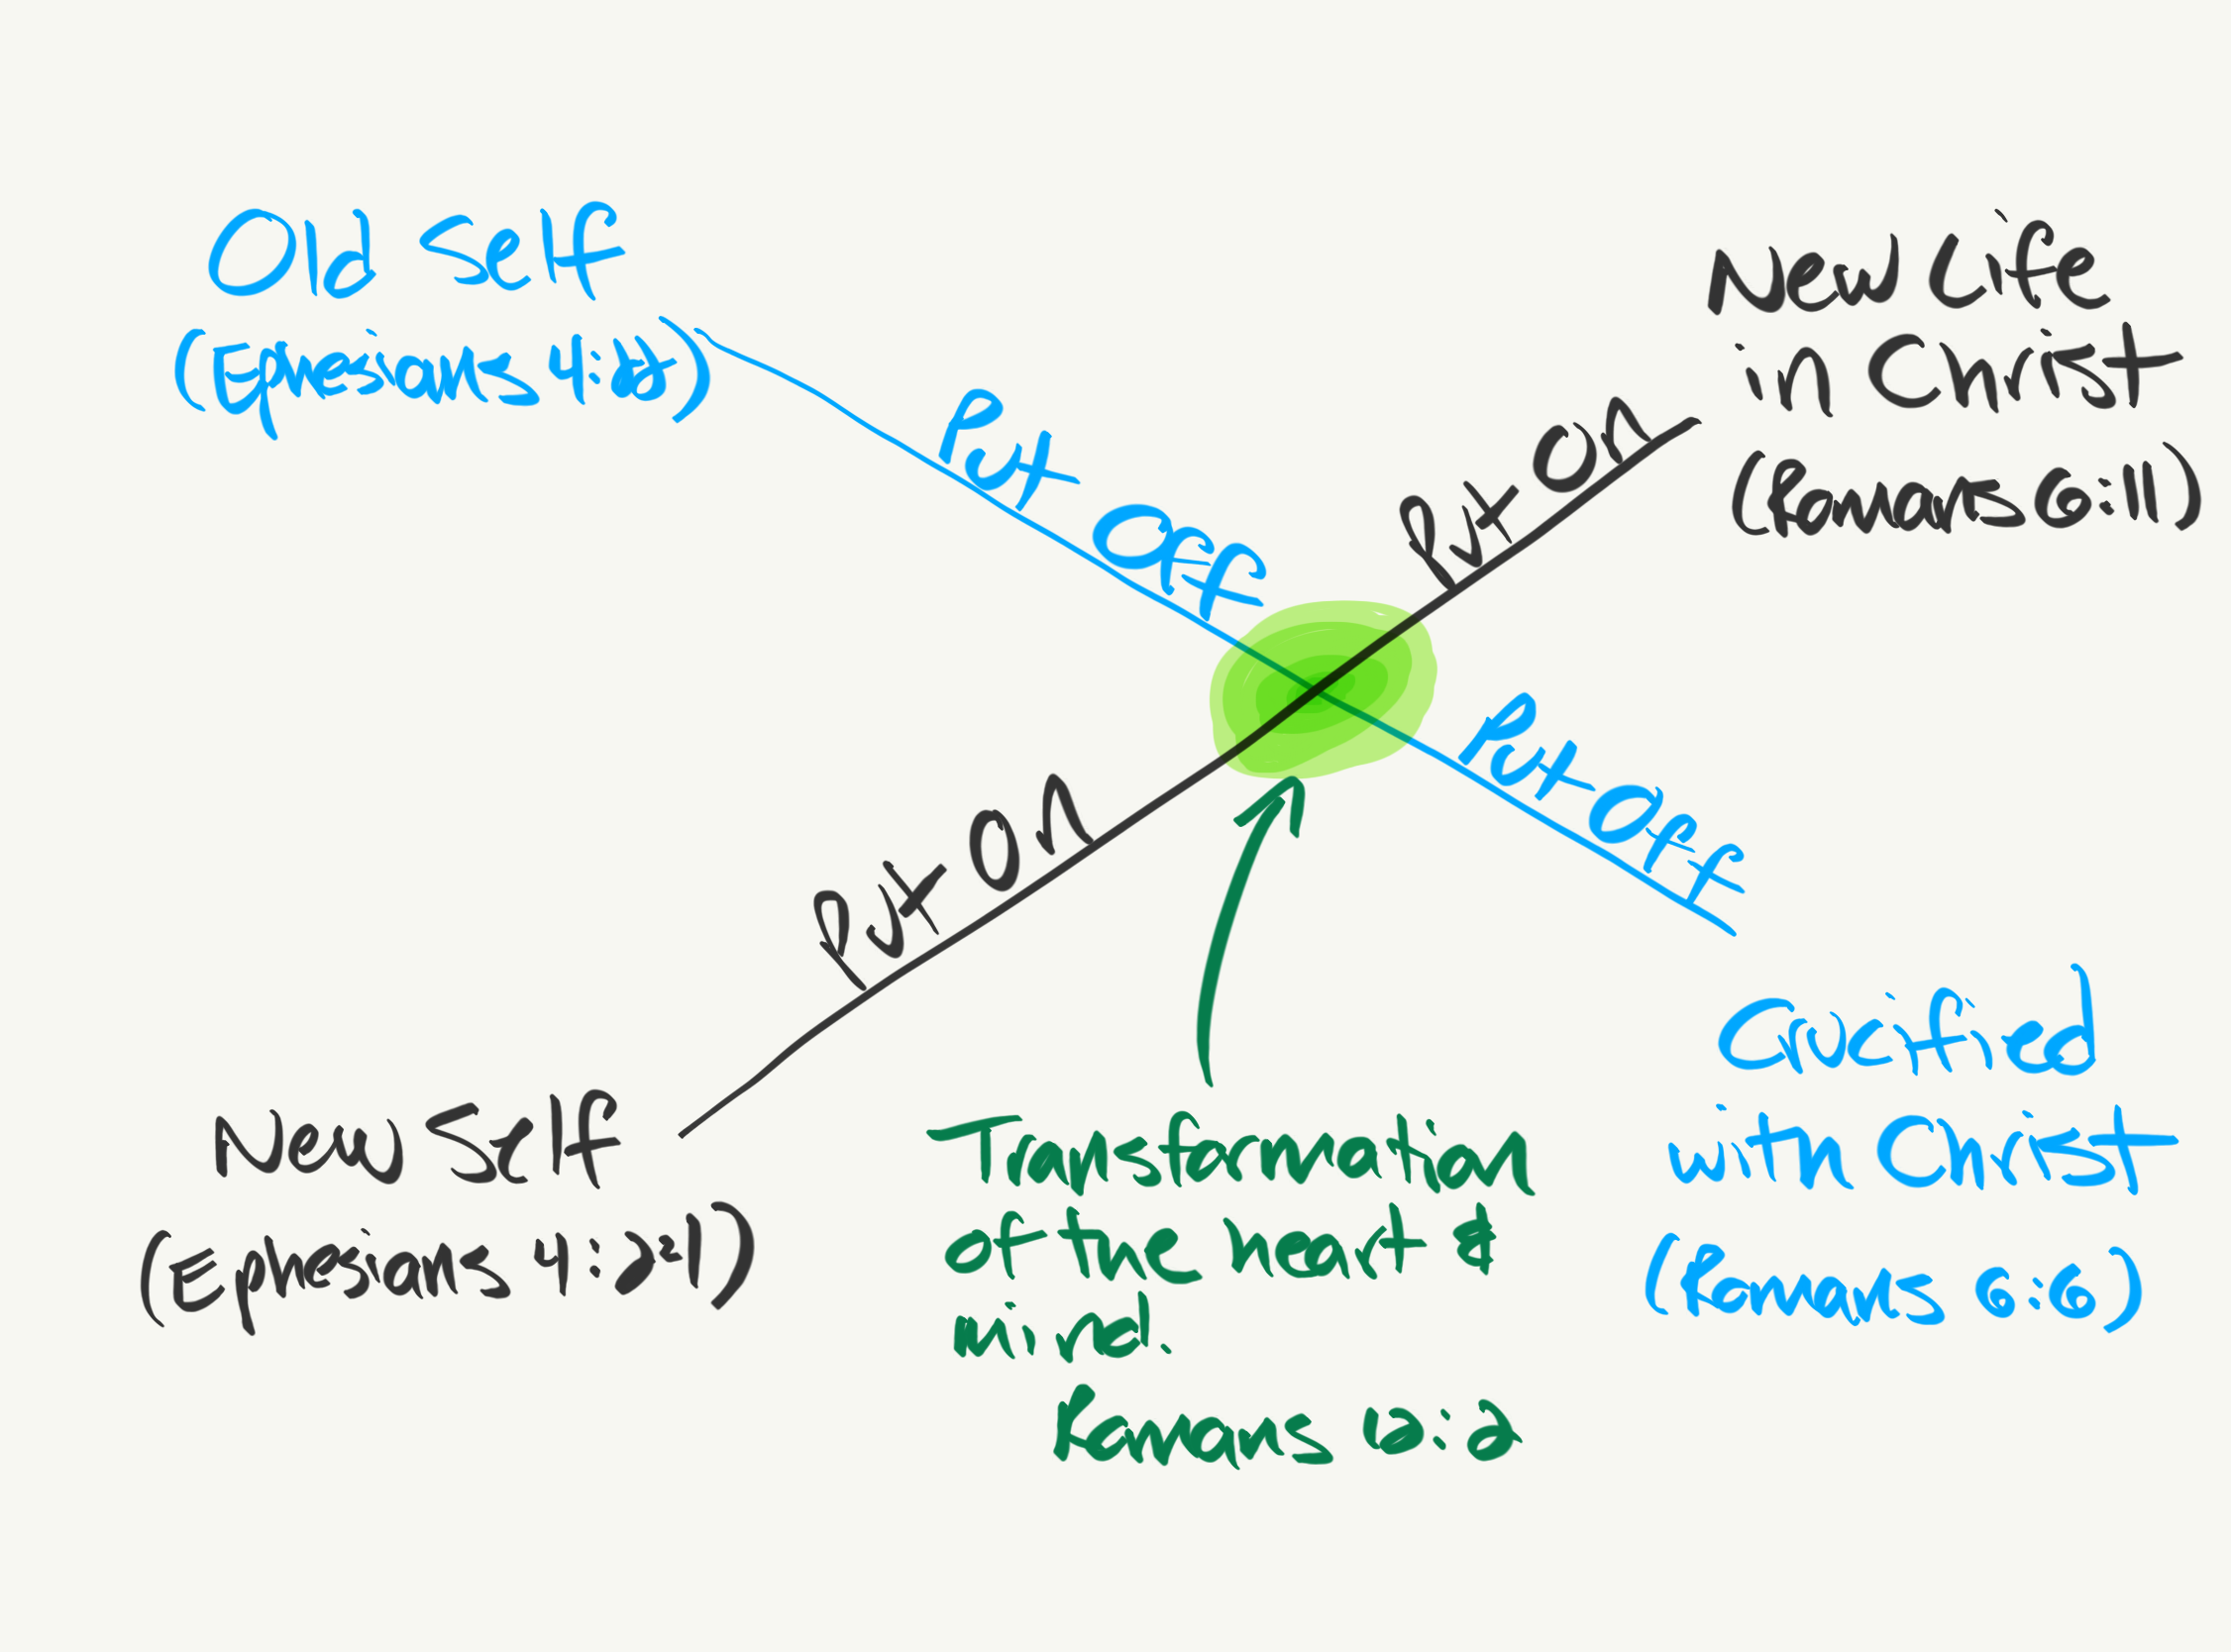 Old Self
(Ephesians 4:22)
Put Off
Put On
New Life
in Christ
(Romans 6:11)
Put On
Put Off
New Self
(Ephesians 4:24)
Transformation
of the heart &
mind.
Romans 12:2
Crucified
with Christ
(Romans 6:6)